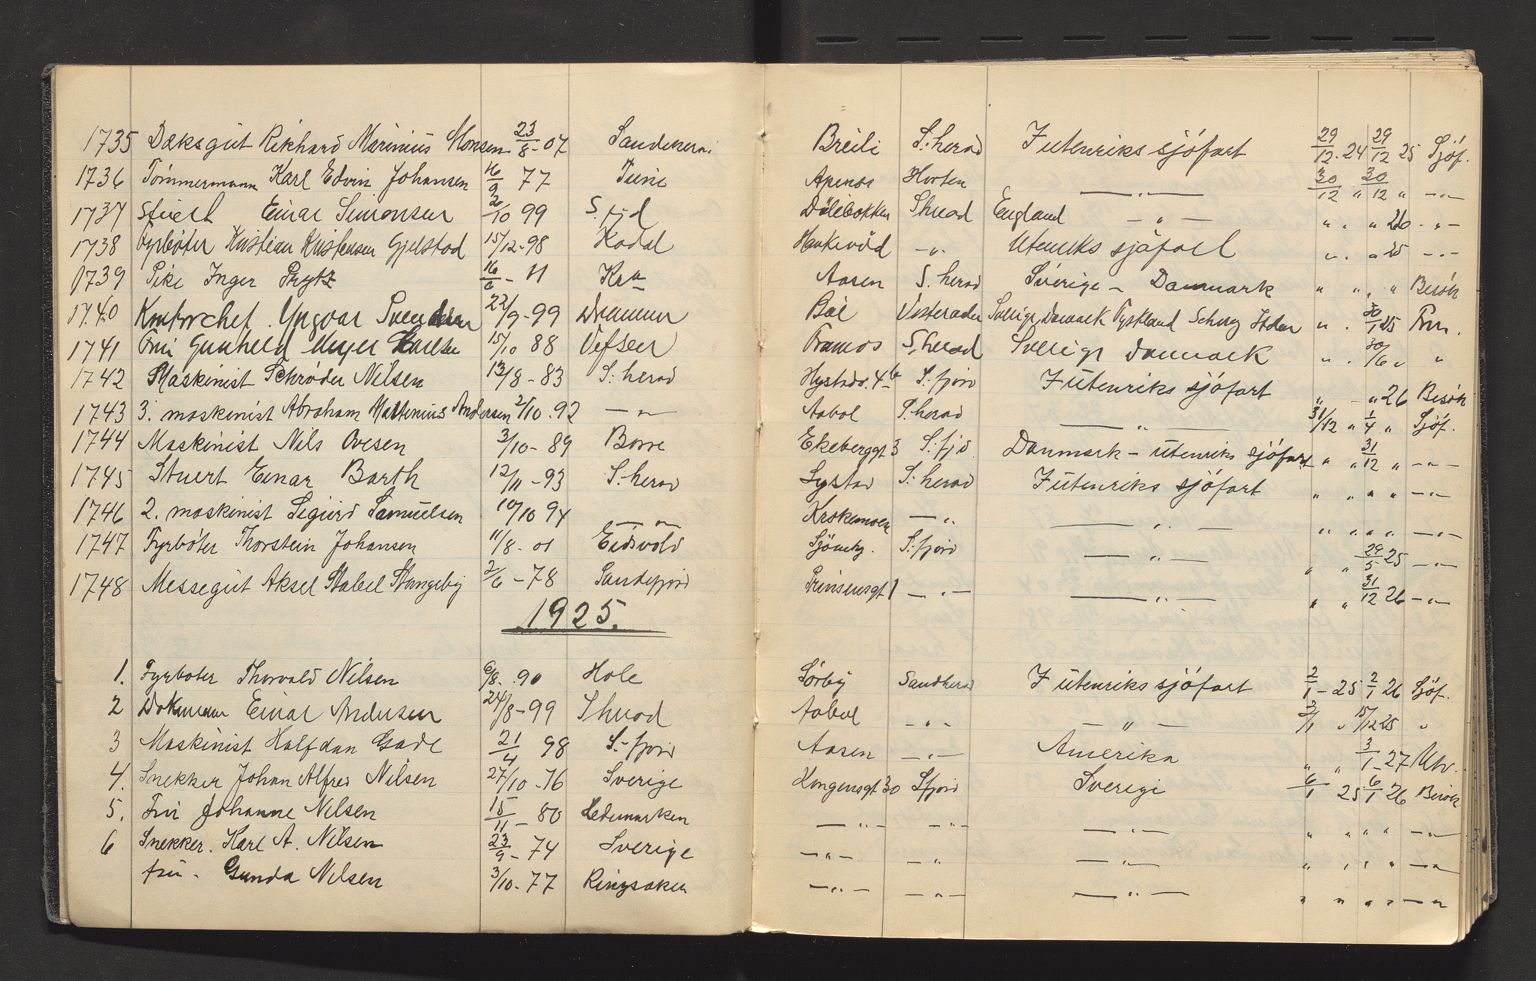 1735 Dæksgut Rikhard Marinius Monsen 23/8-07 Sandeherred Breili S:herad I utenriks sjöfart 29/12-24 29/12 25 Sjöf.
1736 Tömmermann Karl Edvin Johansen 16/9 77 Tune Apenes Horten —„— 30/12 „ 30/12 „ —„—
1737 Einar Simonsen 2/10 99 S.fjd Dölebakken S herad England —„— „ „ „ 26 -„-
1738 Fyrböter Kristian Kristensen Gjelstad 15/12-98 Kodal Haukeröd -„- Utenriks sjöfart „ „ „ 25 -„-
1739 Pike Inger Prytz 16/6-11 Kra Aasen S. herad Sverige - Danmark „ „ „ „ Besök
1740 Kontorchef. Yngvar Svendsen 22/9-99 Drammen Böe Vesteraden Sverige, Danmark Tyskland „ . 30/1 25
1741 Fru Gunhild Meyer 15/10 88 Vefsen Framnes S.herad Sverige Danmark „ . 30/6 „ „
1742 Maskinist Schrøder Nilsen 13/8-83 S:herad 4 b S:fjord I utenriks sjöfart „ - „ 26 Besök
1743 3. maskinist Abraham Martinius Andersen 2/10-92 —„— Aabol S.herad —„— 31/12 „ 1/4 „ Sjöf.
1744 Maskinist Nils Ovesen 3/10-89 Borre Ekeberggt 3 S:fjd. Danmark - utenriks sjöfart „ „ 31/12 „ -„-
1745 Stuert Einar Barth 12/11-93 S:herad Lystad S:herad I utenriks sjöfart „ „ „ „ -„-
1746 2. maskinist Sigurd Samuelsen 10/10 94 —„— Krokemoen —„ —„— „ „ „ „ -„-
1747 Fyrböter Thorstein Johansen 11/8-01 Eidsvold S:fjord —„— „ „ 29/5 25 -„-
1748 Messegut Aksel Stabel Stangeby 2/6-78 Sandefjord Prinsensgt 1 -„- —„— „ „ 31/12 26 -„-
1925.
1. Fyrböter Thorvald Nilsen 6/8. 90 Hole Sörby Sandherad I utenriks sjöfart 2/1-25 2/1 26 Sjöf.
2 Einar Andersen 24/8-99 S herad Aabol -„- —„— 3/1 „ 15/12 25 „
3 Maskinist Halfdan Gade 21/4 98 S.-fjord Aasen -„- Amerika „ „ 3/1-27 Utv.
4. Snekker Johan Alfred Nilsen 27/10-76 Sverige Kongensgt 30 S fjord Sverige 6/1 25 6/1 26 Besök
5. Fru Johanne Nilsen 15/11-80 Hedemarken —„— -„- —„— „ „ „ „ -„-
6 Snekker. Karl A. Nilsen 23/9-74 Sverige —„— -„ —„— „ „ „ „ -„-
fru. Gunda Nilsen 3/10-77 Ringsaker —„— -„- —„— „ „ „ „ -„